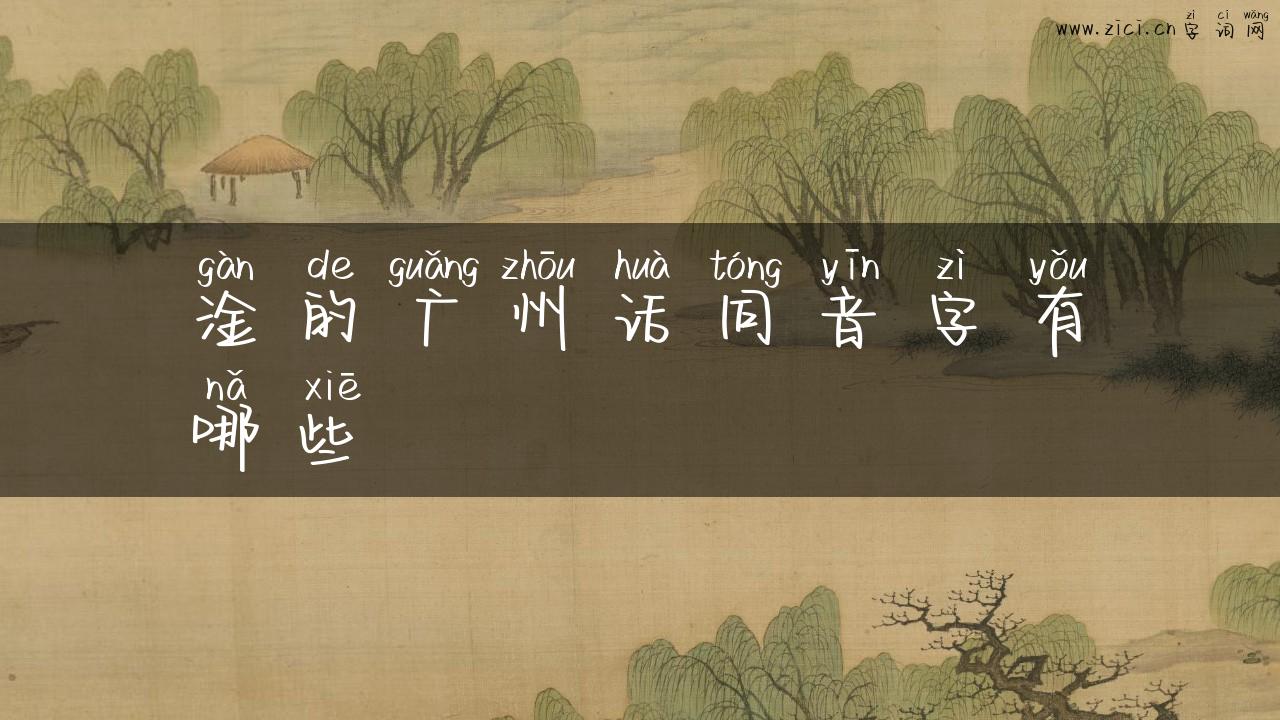 zì cí wǎng
www.zici.cn 字 词 网
gàn de guǎng zhōu huà tóng yīn zì yǒu
淦 的 广 州 话 同 音 字 有
nǎ xiē
哪 些